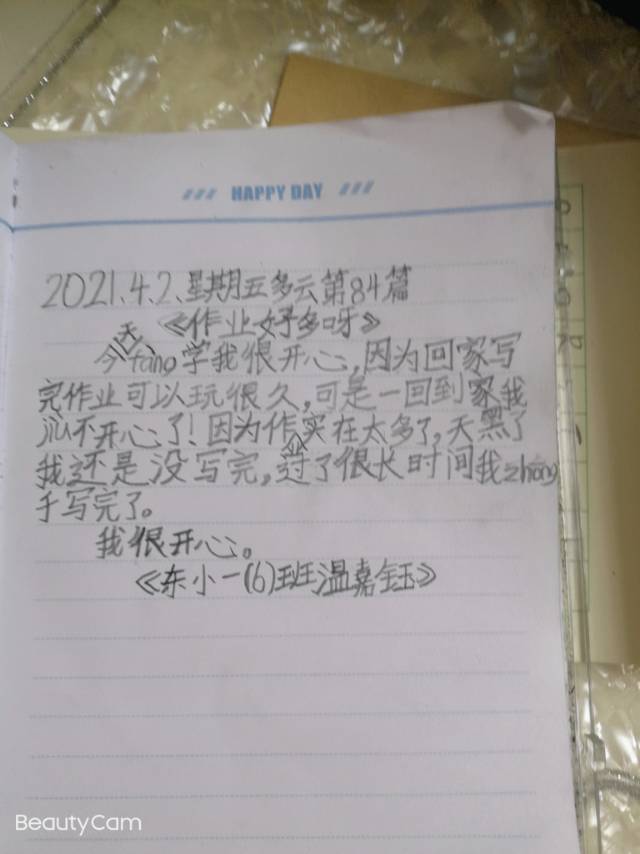 HAPPY DAY
2021.4.2、星期五多云第84篇
《作业好多呀》
今天fàng学我很开心,因为回家写
完作业可以玩很久,可是一回到家我
就不开心了!因为作业实在太多了,天黑了
我还是没写完,过了很长时间我zhōng
于写完了。
我很开心。
《东小一(6)班温嘉钰》
BeautyCam